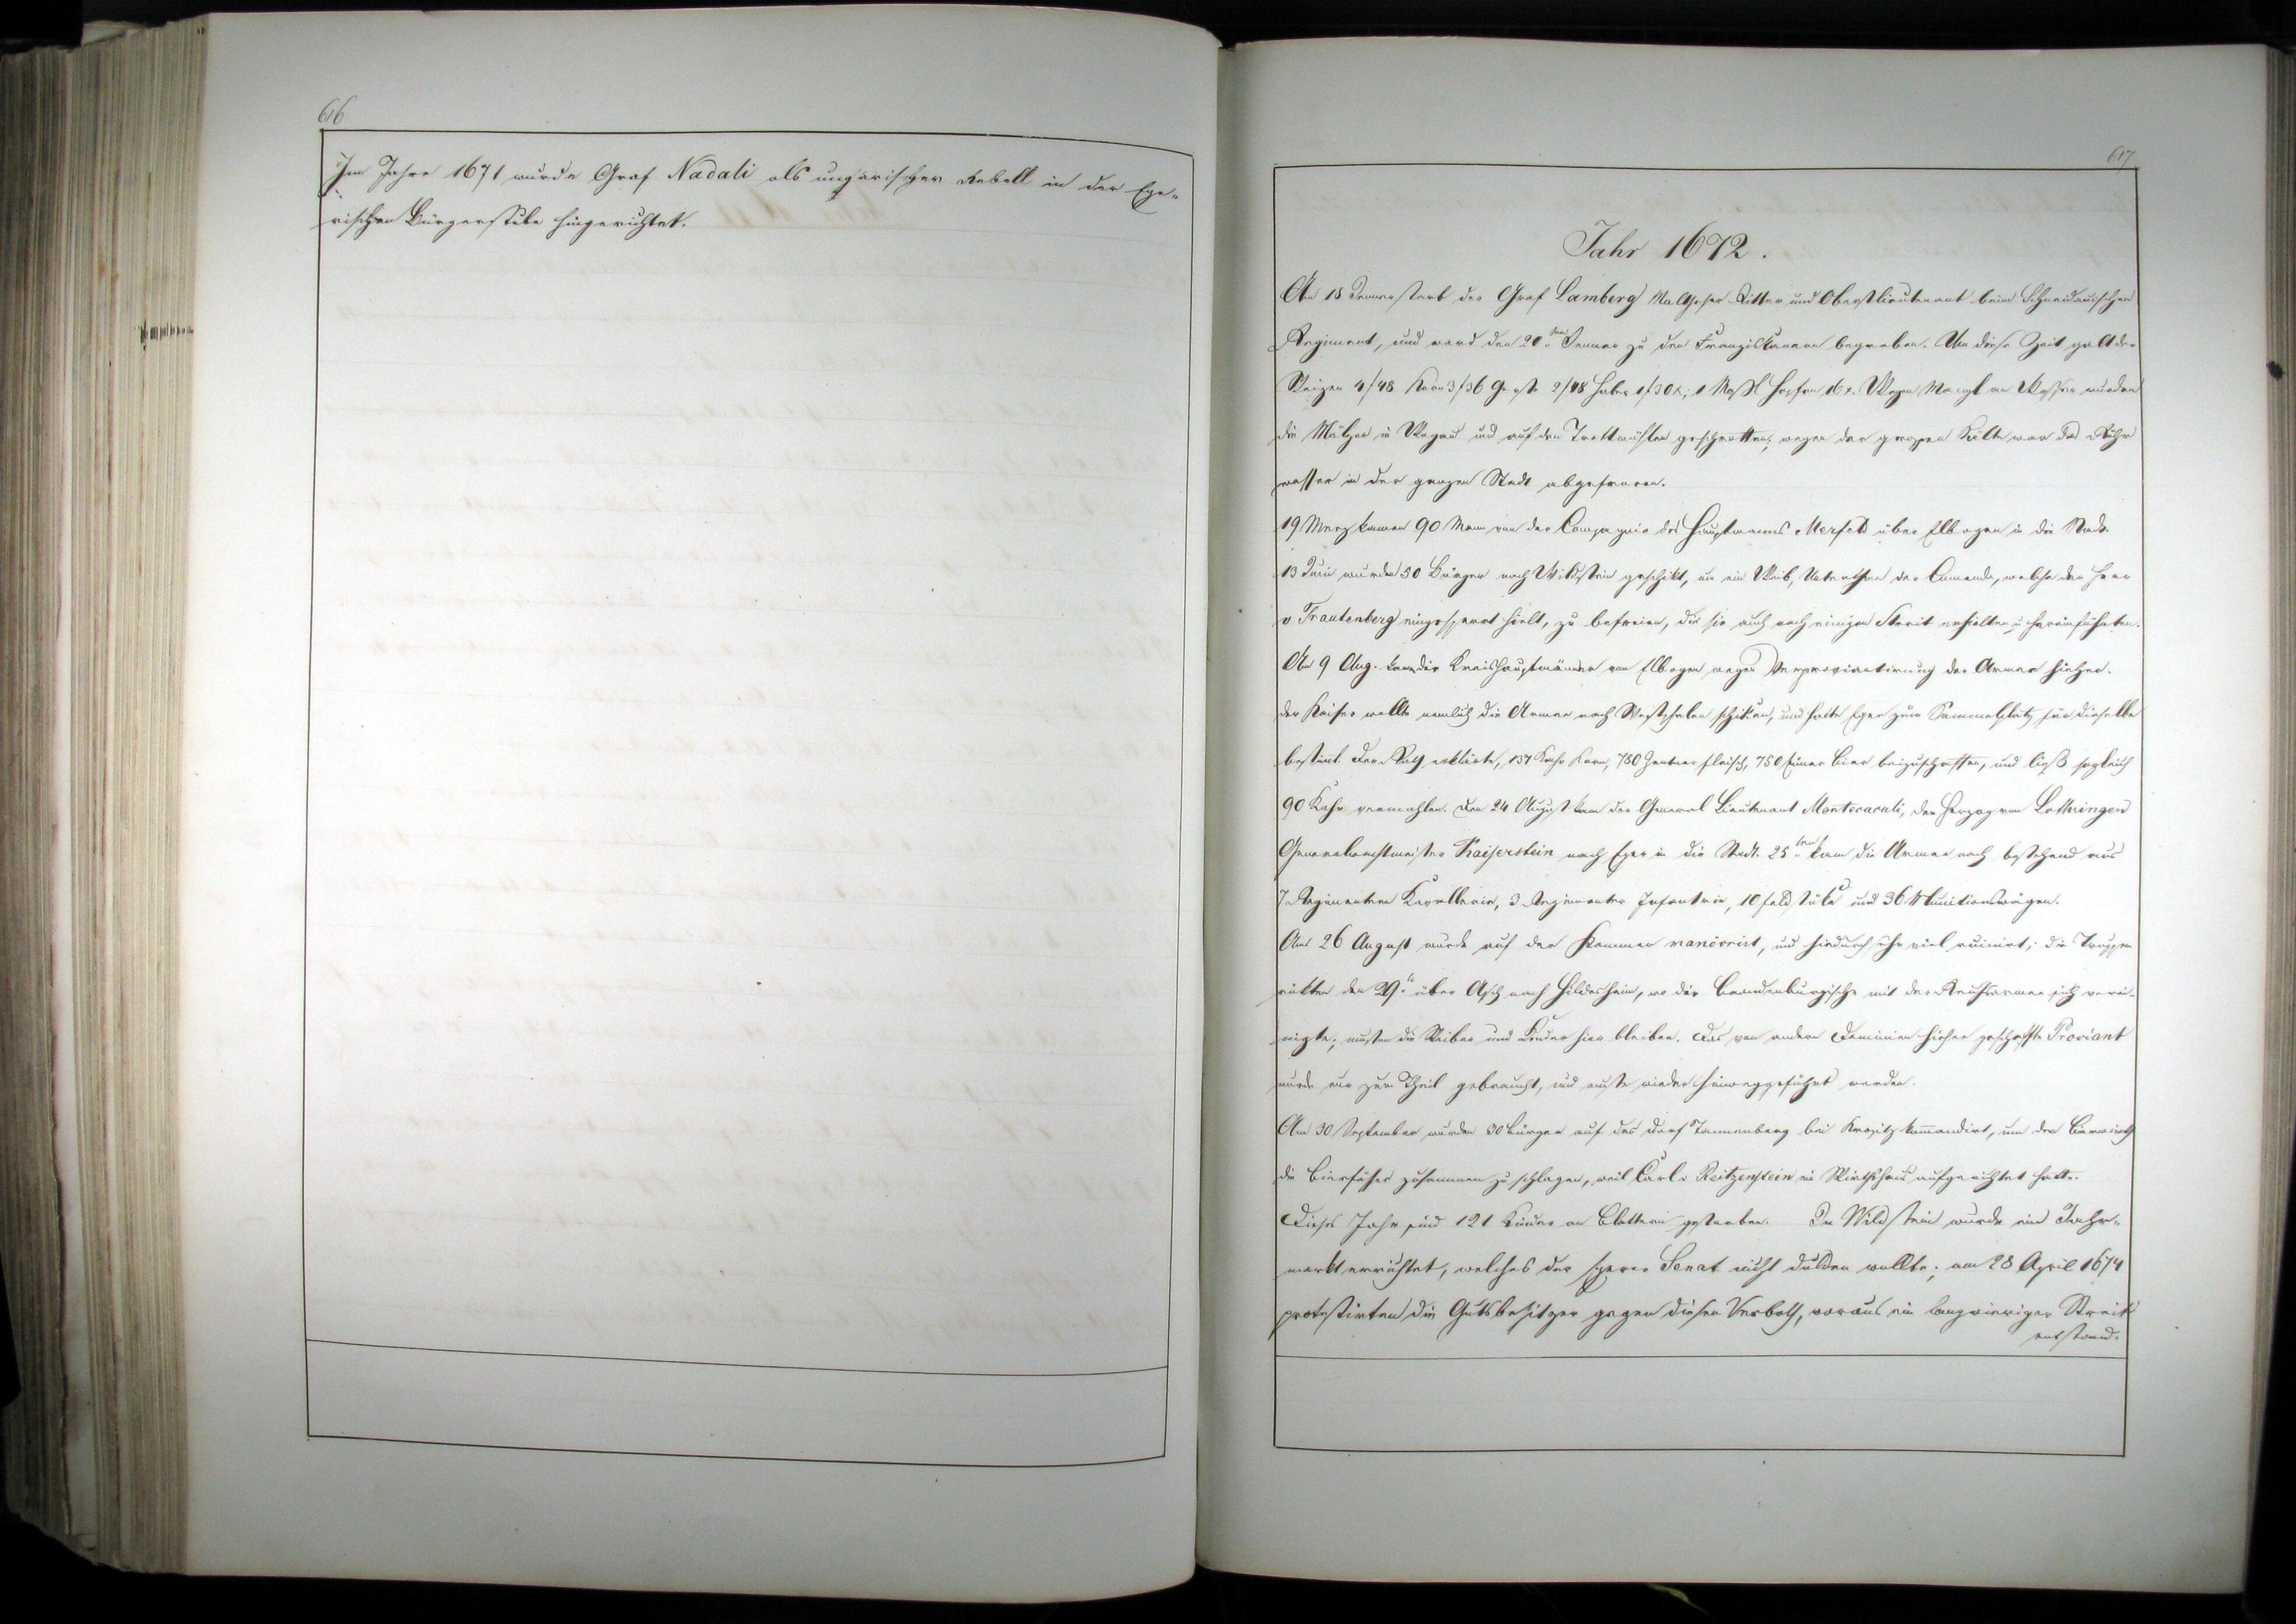 616
Im Jahre 1671 wurde Graf Nadali als ungarischer Rebell in der Ege-
rischen Bürgerstube hingerichtet.
617
Jahr 1672.
Am 18 Jenner starb der Graf Lamberg Maltheser Ritter und Oberstlieutenant beim Schneidauischen
Regiment, und ward den 20ten Jenner zu den Franziskanern begraben. Um diese Zeit galt der
Weizen 4/48 Korn 3/36 Gerste 2/48 Haber 1/30x; 1 Hopfen 16x. Wegen Mangl an Wasser wurden
die Mälzer in und auf den Trettmühlen geschrotten; wegen der grossen Kälte war das Röhr
wasser in der ganzen Stadt abgefroren.
19 Merz kamen 90 Mann von der Compagnie des Hauptmanns Merfeld über Elbogen in die Stadt.
13 Juni wurden 50 Bürger nach Wildstein geschikt, um ein Weib, Unterthan der Comenda, welche der Herr
v Trautenberg eingesperrt hielt, zu befreien, die sie auch nach einigen Streit erhielten u hereinführten.
Am 9 Aug. kam die Kreishauptmänner von Elbogen wegen Verproviantirung der Armee hieher.
der Kaiser wollte nemlich die Armee nach Westphalen schiken, und hatte Eger zum Sammelplatz für dieselbe
bestimt. Der Rath erklärte, 137 Kahr Korn, 780 Zentner Fleisch, 750 Eimer Bier beizuschaffen, und ließ sogleich
90 Kahr vermahlen. Den 24 August kam der General Lieutenant Montecuculi, der Herzog von Lothringen
Generalwachtmeister Kaiserstein nach Eger in die Stadt. 25ten kam die Armee nach bestehend aus
7 Regimentern Kavallerie, 3 Regimenter Infantrie, 10 Feldstüke und 36 Munitionswägen.
Am 26 August wurde auf der Kammer manövrirt, und hiedurch sehr viel ruinirt; die Truppen
rükten den 29t. über Asch nach Hildesheim, wo die Brandenburgische mit der Reichsarmee sich verei-
nigte; mußten die Weiber und Kinder hier bleiben. Das von andern Dominien hieher geschaffte Proviant
wurde nur zum Theil gebraucht, und mußte wieder hinweggeführt werden.
Am 30 September wurden 30 Bürger auf das Dorf Tannenberg bei kommandirt, um den Bierwirth
die Bierfäßer zusammen zu schlagen, weil Carl v Reitzenstein ein Wirthshaus aufgerichtet hatte.
Dieses Jahr sind 121 Kinder an Blattern gestorben. In Wildstein wurde ein Jahr-
markt errichtet, welches der Senat nicht dulden wollte; am 28 April 1674
protestirten die Gutsbesitzer gegen diesen Verboth, woraus ein langwieriger Streit
entstand.